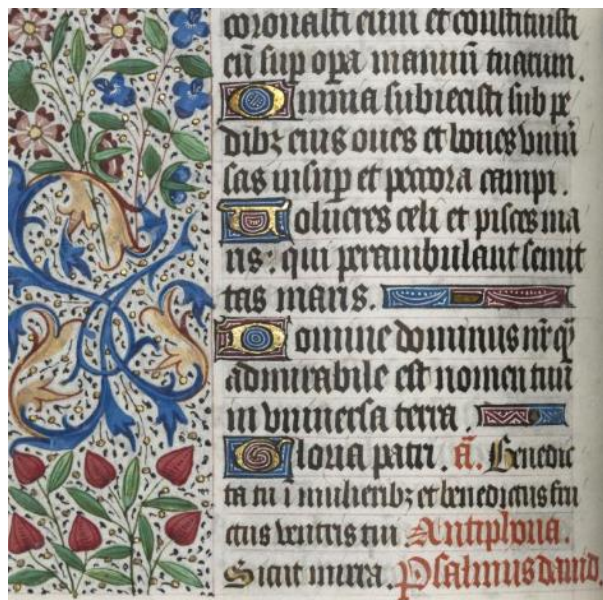 coronasti eum et constituisti
cū sup opa manuū tuarum.
Omnia subiecisti sub pe
dibz eius oues et boues vniū
sas insup et pecora campi.
Volucres celi et pisces ma
ris: qui perambulant semit
tas maris.
Domine dominus nr̄ qȝ
admirabile est nomen tuū
in vniuersa terra.
Gloria patri. ā. Benedic
ta tu ī mulieribz et benedictus fru
ctus ventris tui Antiphona.
Sicut mirra. Psalmus dauid.